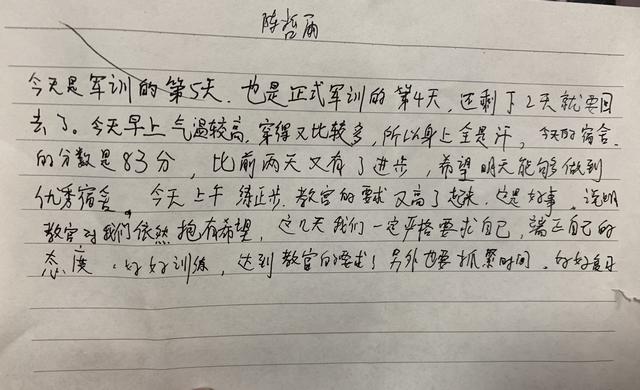 陈哲雨
今天是军训的第5天.也是正式军训的第4天,还剩下2天就要回
去了。今天早上气温较高,穿得又比较多,所以身上全是汗,今天的宿舍
的分数是83分,比前两天又有了进步,希望明天能够做到
优秀宿舍。今天上午练正步.教官的要求又高了起来.这是好事.说明
教官对我们依然抱有希望,这几天我们一定严格要求自己,端正自己的
态度.好好训练,达到教官的要求!另外也要抓紧时间.好好复习